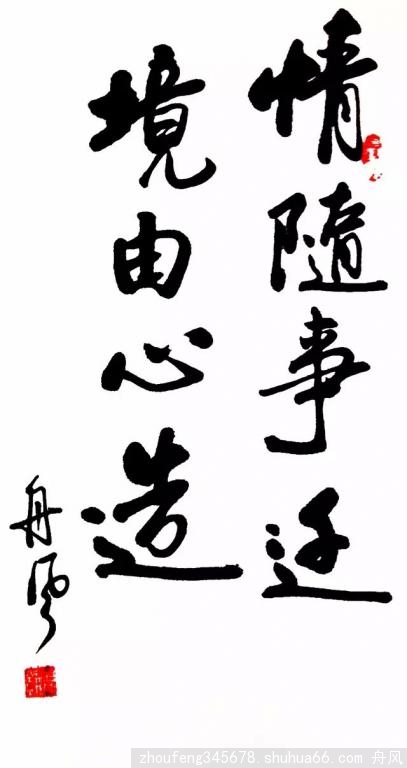 情隨事迁
境由心造
舟风
zhoufeng345678.shuhua66.com 舟风